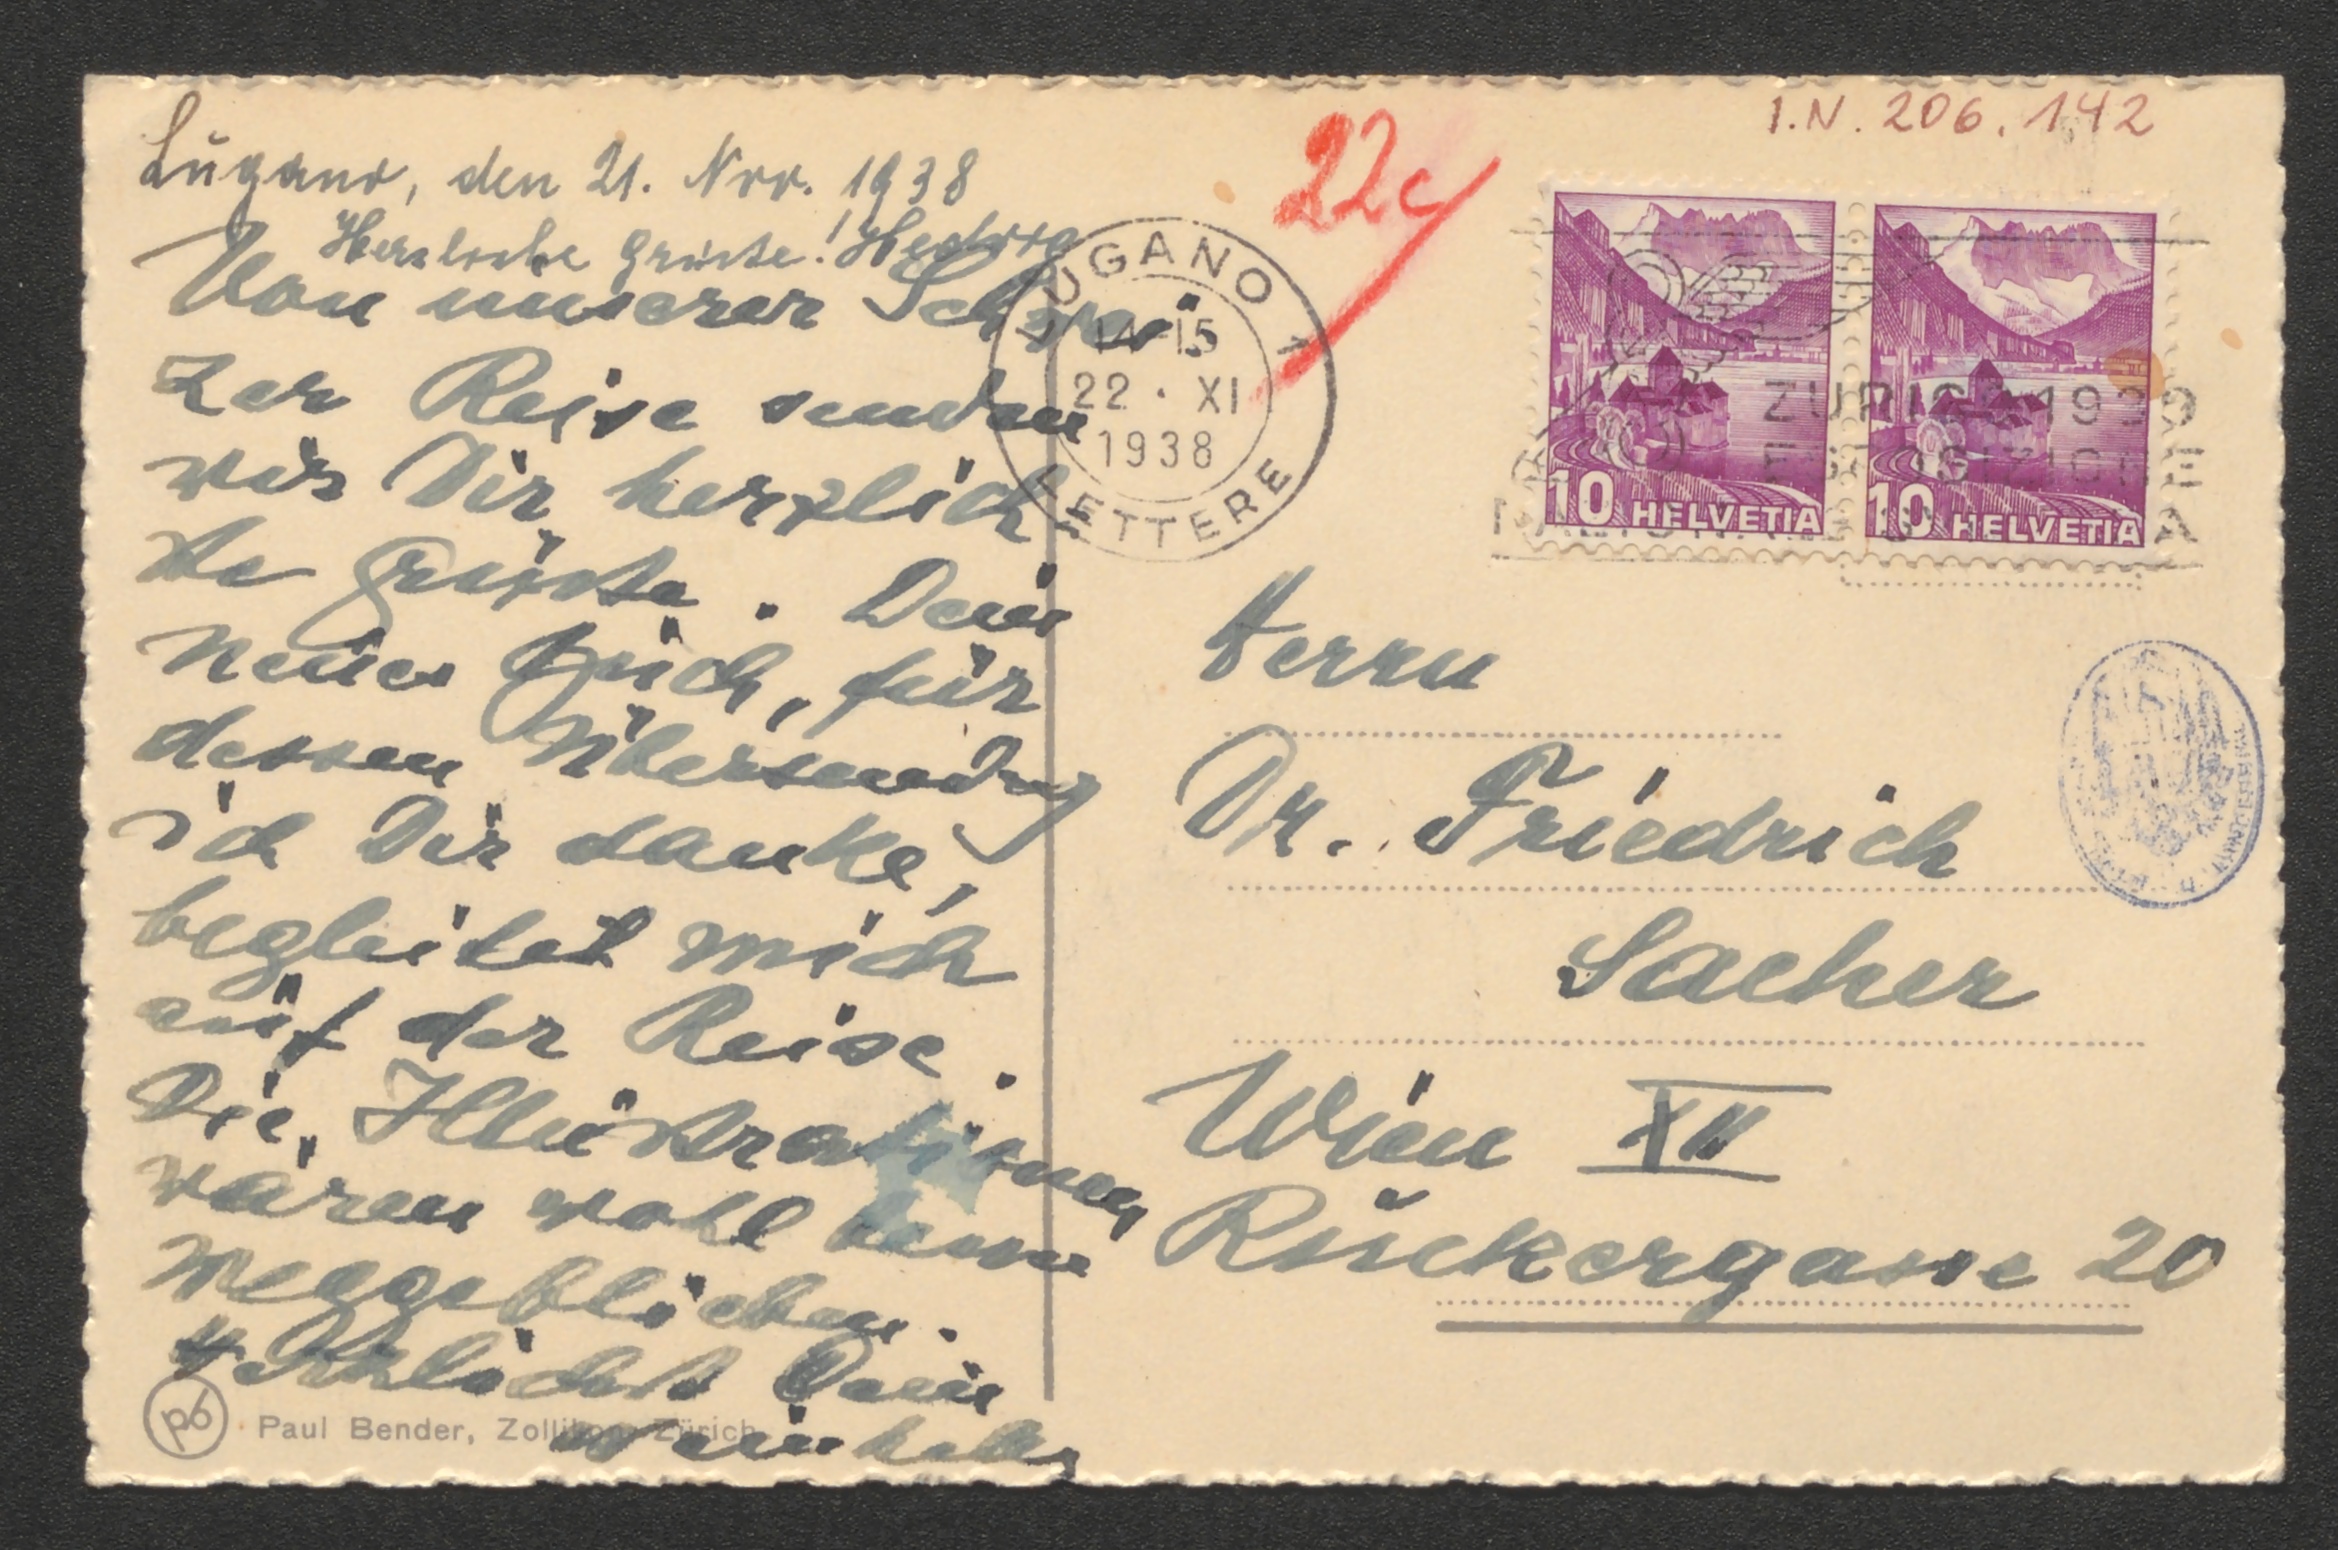 Lugano, den 21. Nov. 1938
Herzliche Grüsse! Hedwig
Von unserer Schwei-
zer Reise senden
wir Dir herzlich-
ste Grüsse. Dein
neues Buch, für
dessen Übersendung
ich Dir danke,
begleitet mich
auf der Reise.
Die Illustrationen
wären wohl besser
weggeblieben.
Herzlichst Dein
Weinheber
Paul Bender, Zollikon-Zürich
pb
22c
I.N. 206.142
LUGANO 1
14-15
22 · XI
1938
LETTERE
ZURIGO 1939
10 HELVETIA 10 HELVETIA
Herrn
Dr. Friedrich
Sacher
Wien XII
Rückergasse 20